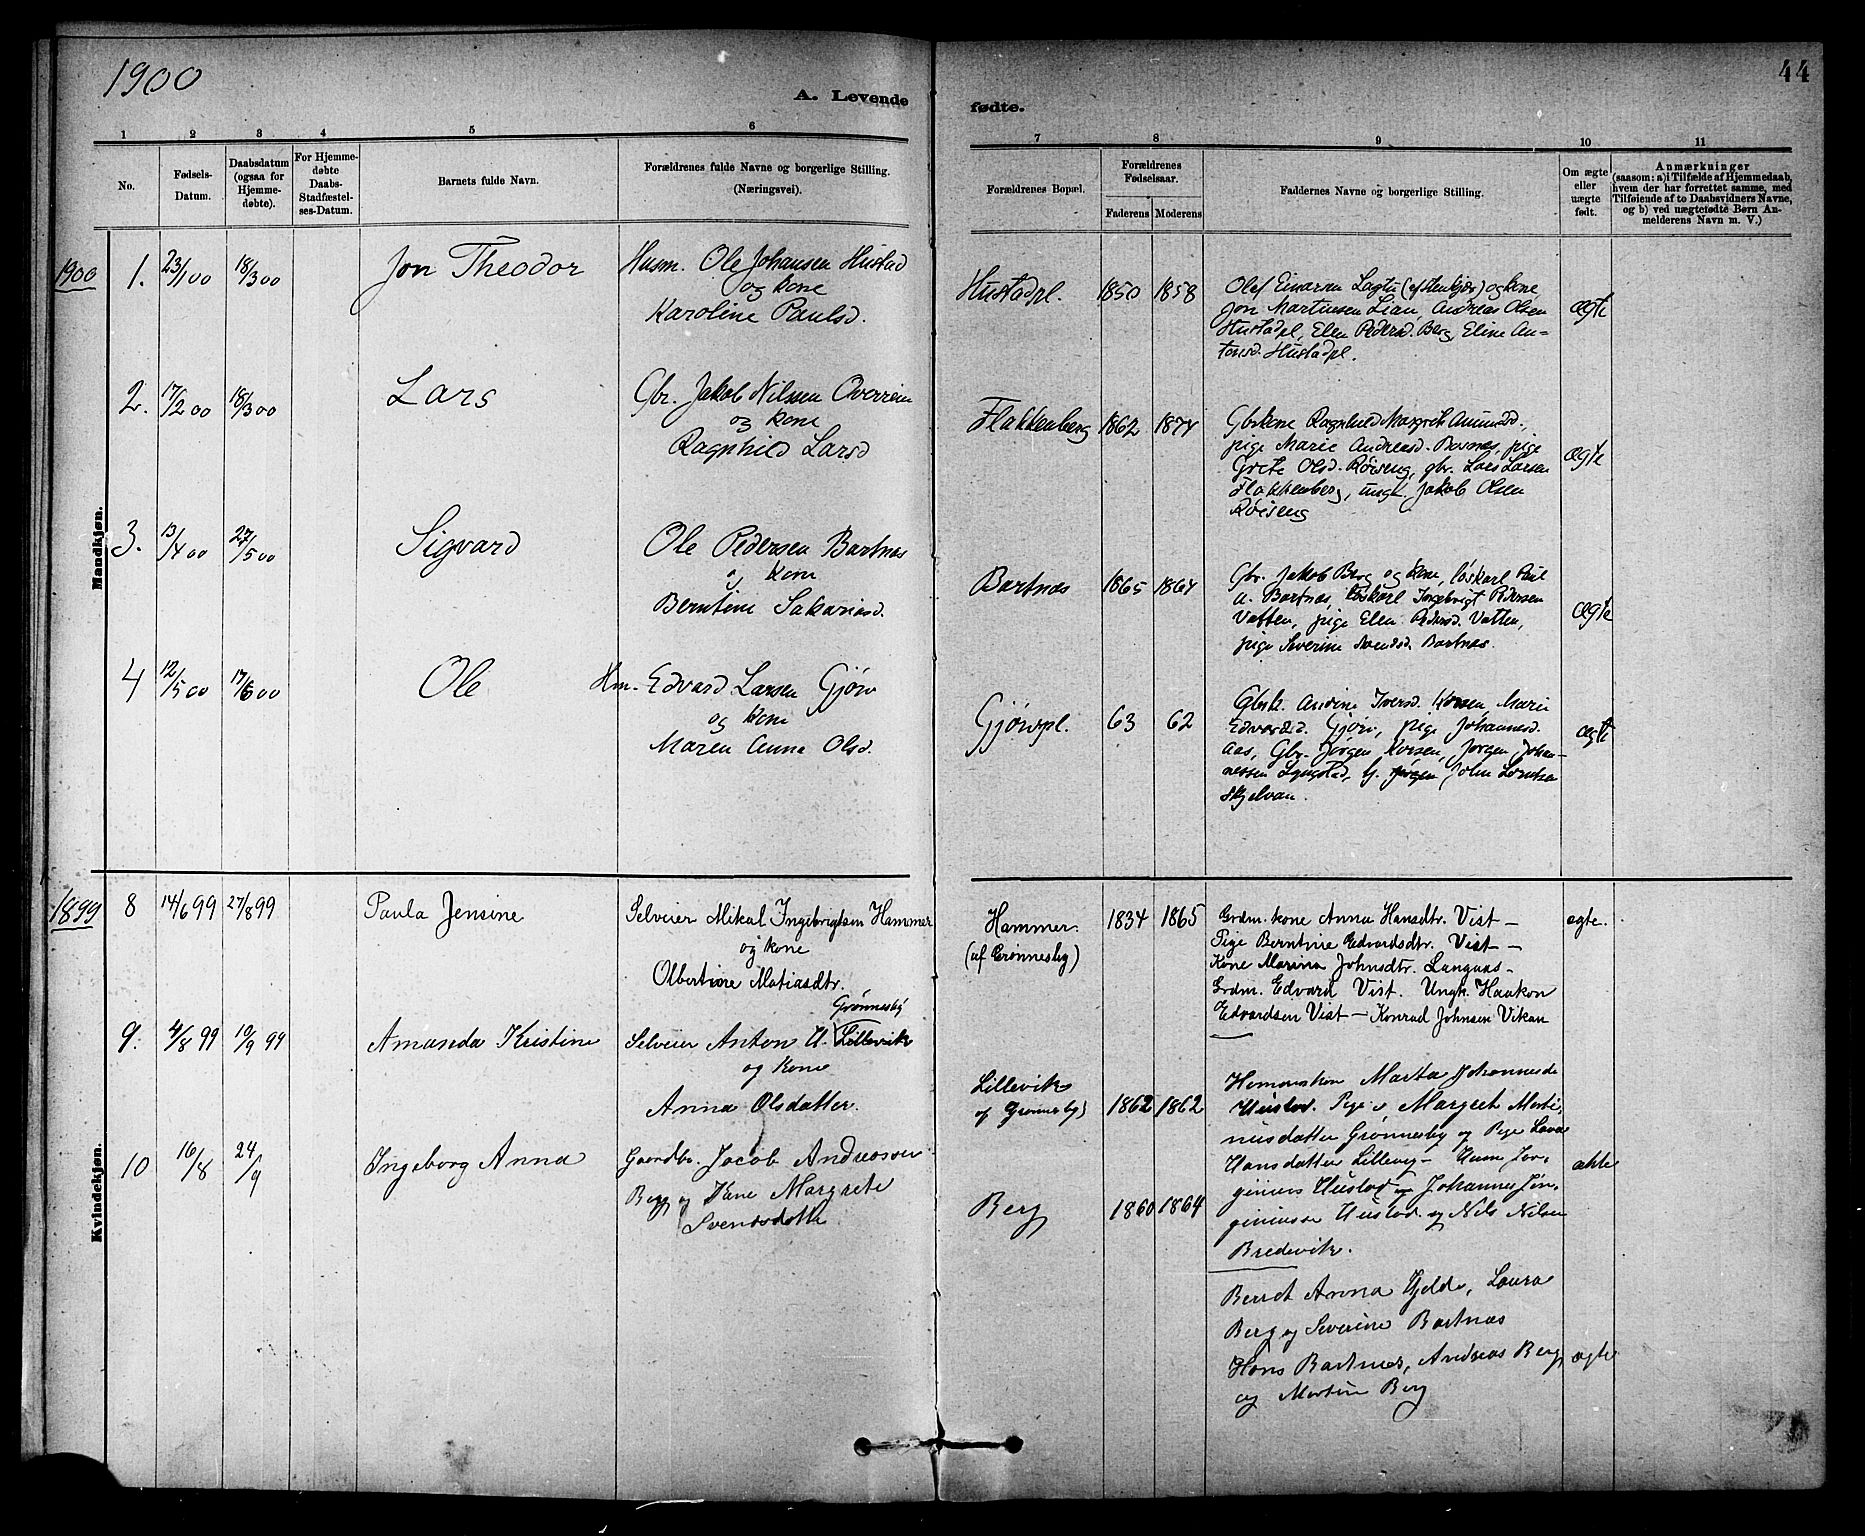 1900
44
A. Levende
fødte.
1 2 3 4 5 6 7 8 9 10 11
No.
Fødsels-
Datum.
Daabsdatum
(ogsaa for
Hjemme-
døbte).
For Hjemme-
døbte
Daabs-
Stadfæstel-
ses-Datum.
Barnets fulde Navn.
Forældrenes fulde Navne og borgerlige Stilling.
(Næringsvei).
Forældrenes Bopæl.
Forældrenes
Fødselsaar.
Faderens Moderens
Faddernes Navne og borgerlige Stilling.
Om ægte
eller
uægte
født.
Anmærkninger
(saasom: a) i Tilfælde af Hjemmedaab,
hvem der har forrettet samme, med
Tilføiende af to Daabsvidners Navne,
og b) ved uægtefødte Børn An-
melderens Navn m. V.)
Mandkjøn.
1900
1. 23/1 00 18/3 00 Jon Theodor
Husm. Ole Johansen Hustad
og kone
Karoline Paulsd.
Hustadpl. 1850 1858
Olef Einarsen (af Stenkjær) og kone
Jon Martinsen Lian, Andreas Olsen
Hustadpl, Elen Pedersd. Berg, Eline An-
tonsd. Hustadpl.
ægte
2. 17/2 00 18/3 00 Lars
Gbr. Jakob Nilssen Overrein
og kone
Ragnhild Larsd
Flakkenberg 1862 1874
Gbrkone Ragnhild Margret Amundsd.,
pige Marie Andreasd. Bosnes, pige
Grete Olsd. Røiseng, gbr. Lars Larsen
Flakkenberg, ungk. Jakob Olsen
Røiseng
ægte
3. 13/4 00 27/5 00 Sigvard
Ole Pedersen Bartnes
og kone
Berntine Sakariasd.
Bartnes 1865 1864
Gbr. Jakob Berg og kone, løskarl Paul
A. Bartnes, løskarl Ingebrigt Pedersen
Vatten, pige Elen Pedersd. Vatten,
pige Severine Svendsd. Bartnes.
ægte
4 12/5 00 17/6 00 Ole
Hm. Edvard Larsen Gjørv
og kone
Maren Anna Olsd.
Gjørvpl. 63 62
Gbrk. Andine Iversd. Korsen, Marie
Edvardsd. Gjørv, pige Johannesd.
Aas, Gbr. Jørgen Korsen, Jørgen Johan-
nessen Lyngstad, John Lorntsen
Skjelvan.
ægte
Kvindekjøn.
1899
8 14/6 99 27/8 99 Paula Jensine
Selveier Mikal Ingebrigtsen Hammer
og kone
Olbertine Matiasdtr.
Hammer.
(af Grønnesby)
1834 1865
Grdm. kone Anna Hansdtr. Vist —
Pige Berntine Edvardsdtr. Vist —
Kone Marina Johnsdtr. Langaas —
Grdm. Edvard Vist. Ungk. Haakon
Edvardsen Vist — Konrad Johnsen Vikan
ægte.
9. 4/8 99 10/9 99 Amanda Kristine
Grønnesby
Selveier Anton H. Lillevik
og kone
Anna Olsdatter.
Lillevik
af Grønnesby)
1862 1862
Marta Johannesd.
Hustad. Pige Margret Marti-
nusdatter Grønnesby og Pige Lava
Hansdatter Lillevig — Husm Jør-
ginius Hustad og Johannes Jør-
giniussen Hustad og Nils Nilsen
Bredevik.
ækte
10 16/8 24/9 Ingeborg Anna
Gaardbr. Jacob Andreassen
Berg og Kone Margrete
Svendsdatter
Berg 1860 1864
Berndt Anna Hjelde, Laura
Berg og Severine Bartnes
Hans Bartnes, Andreas Berg
og Martin Berg
ægte